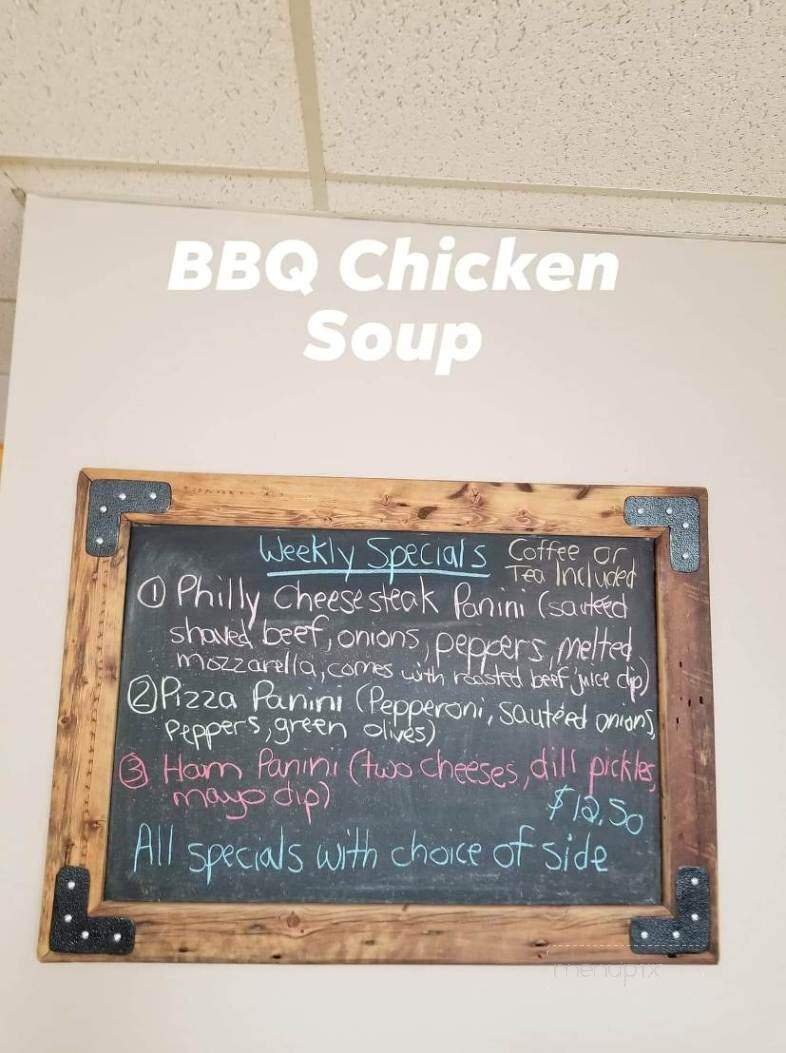 BBQ Chicken
Soup
Weekly Specials Coffee or
Tea Included
① Philly Cheesesteak Panini (sauteed
shaved beef, onions, peppers, melted
mozzarella, comes with roasted beef juice dip)
② Pizza Panini (Pepperoni, sautéed onions,
Peppers, green olives)
③ Ham Panini (two cheeses, dill pickles,
mayo dip)
$12.50
All specials with choice of side
menupix